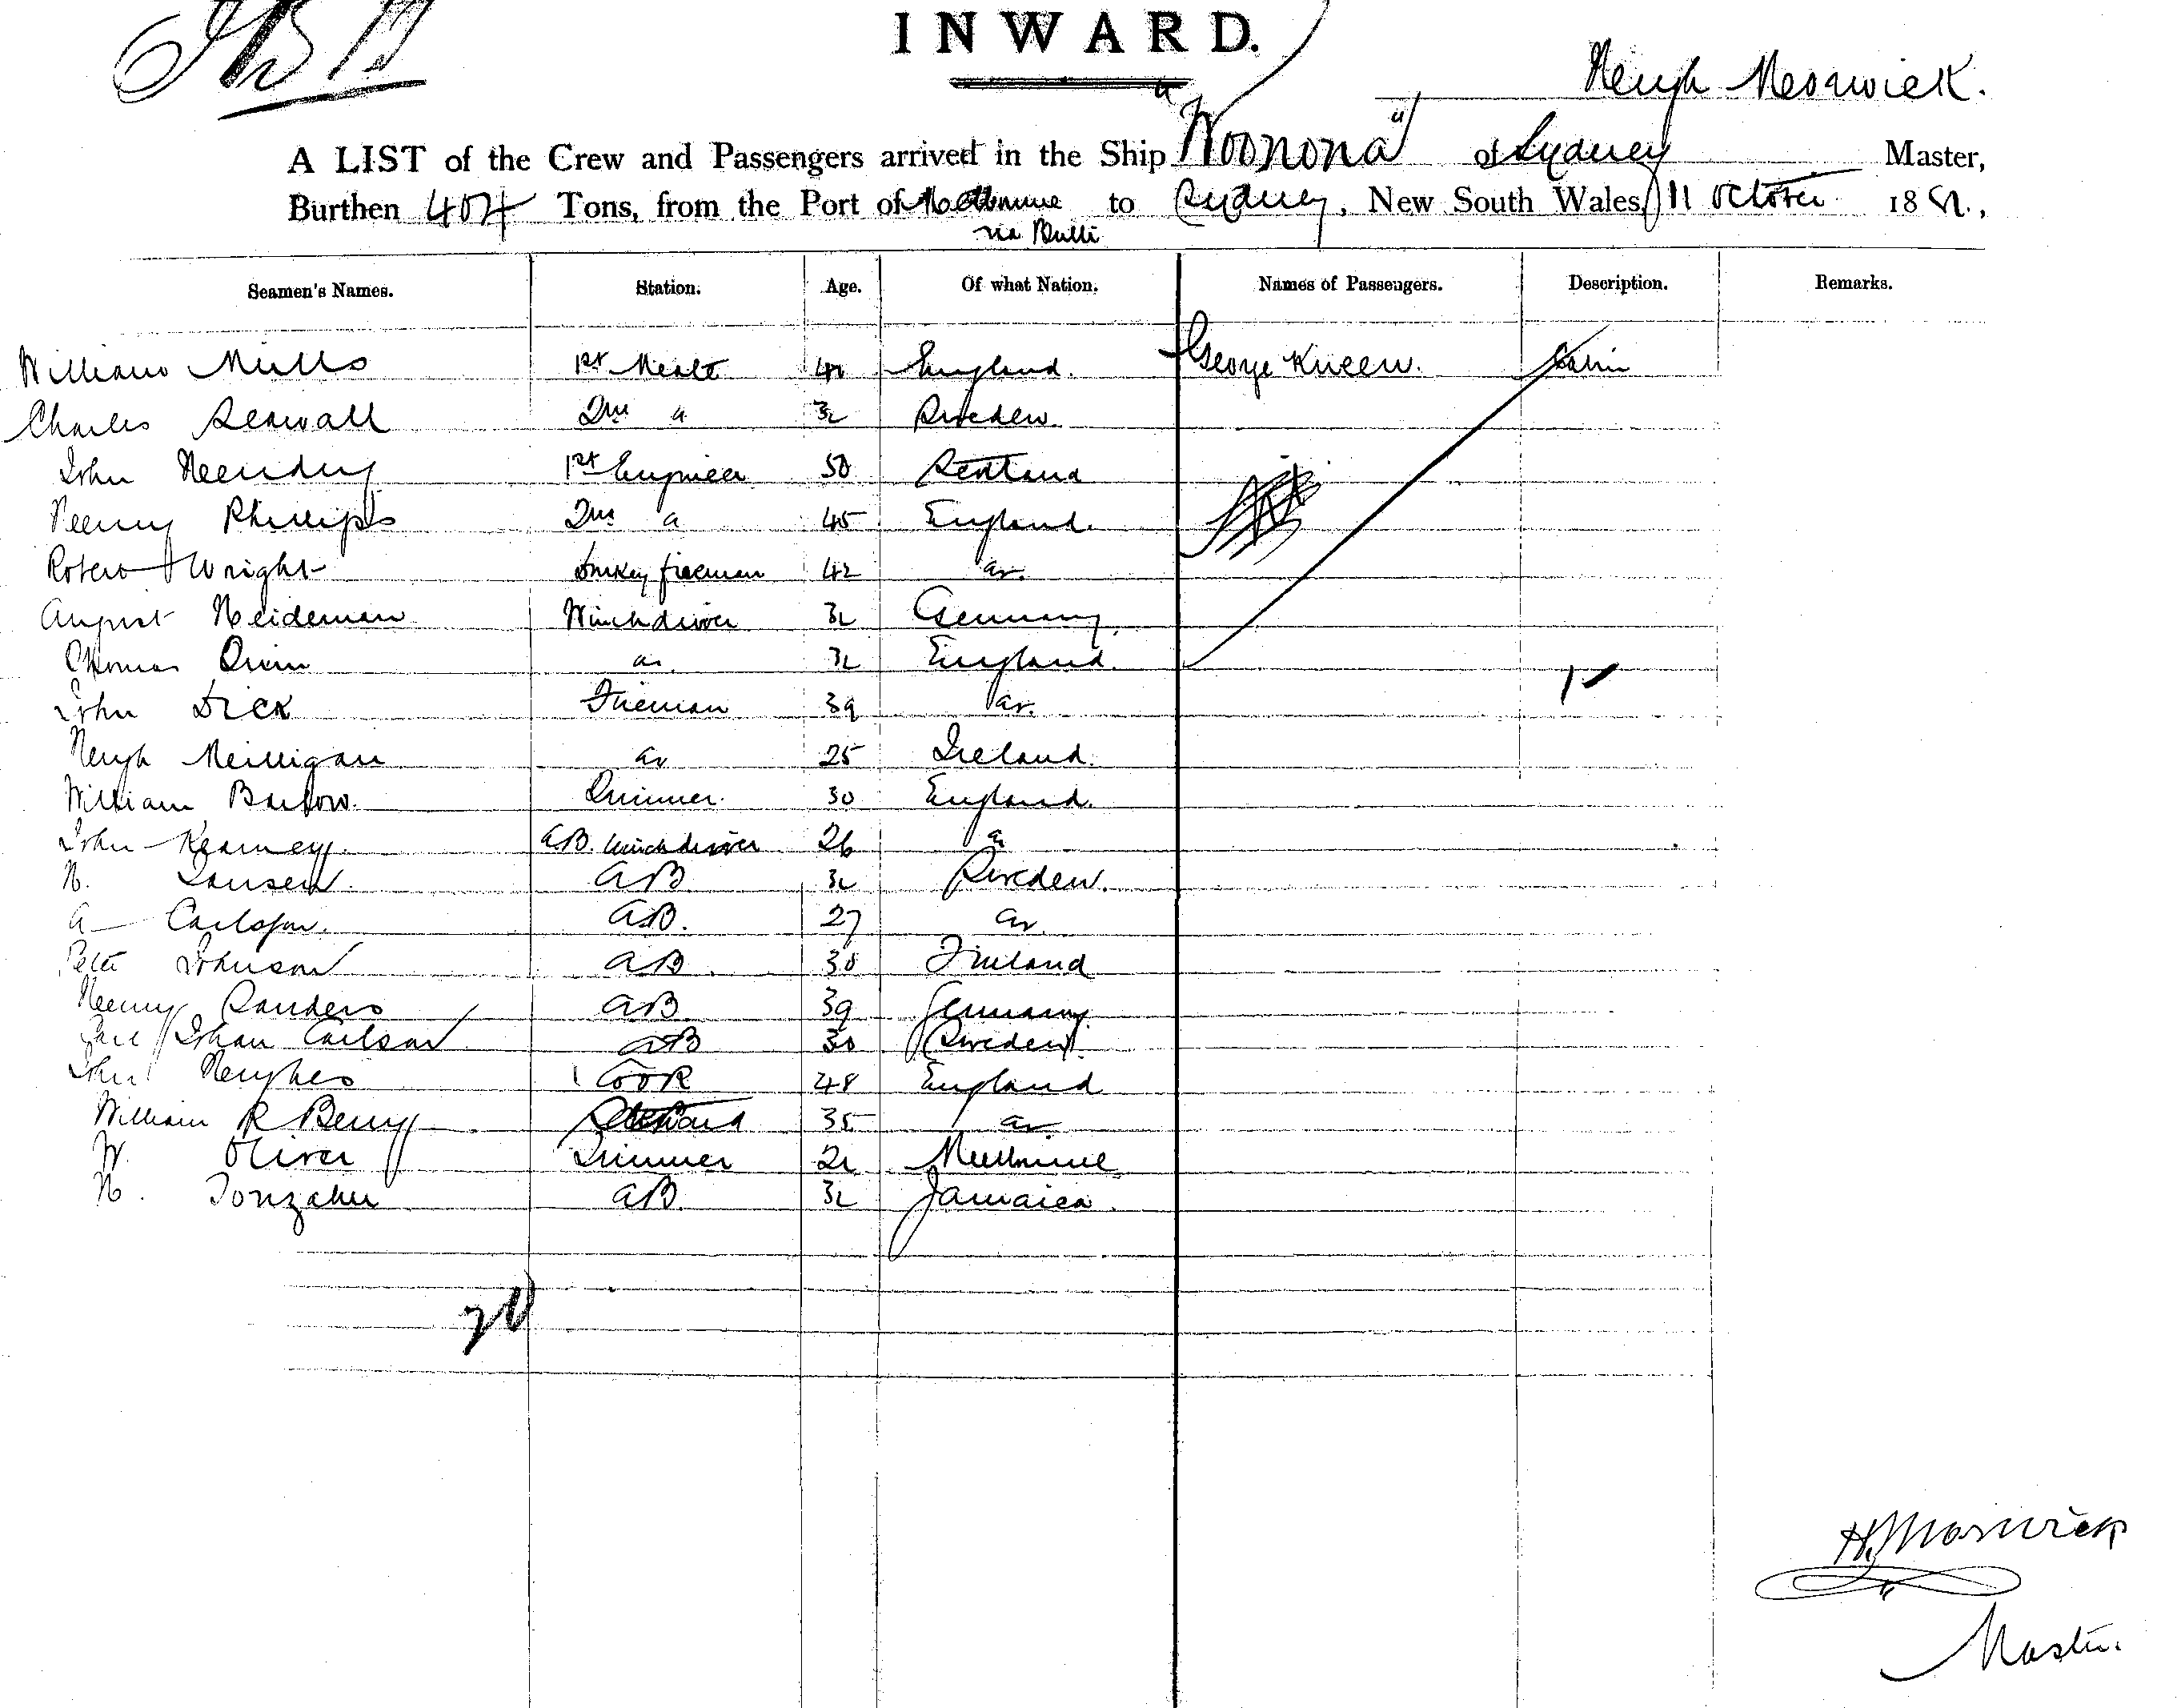 INWARD.
Hugh Moswick.
A LIST of the Crew and Passengers arrived in the Ship "Woonona" of Sydney Master,
Burthen 404 Tons, from the Port of Melbourne to Sydney, New South Wales, 11 October 188
via Bulli
Seamen's Names. Station. Age. Of what Nation. Names of Passengers. Description. Remarks.
William Mills 1st Mate 40 England. George Kneen. Cabin
Charles 2nd " 32 Sweden
John 1st Engineer 50 Scotland
Henry Phillips 2nd " 45 England.
Robert Wright Donkey fireman 42 do.
August Heideman Winchdriver 32 Germany.
Thomas Quin do. 32 England.
John Dick Fireman 39 do.
Hugh Milligan do 25 Ireland.
William Barlow. Trimmer. 30 England.
John Kearney. AB. Winchdriver 26 do
H. Jansen. AB 32 Sweden.
A Carlson. AB. 27 do
Peter Johnson AB. 30 Finland
Henry Sanders AB 39 Germany.
Carl Johan Carlson AB 30 Sweden.
John Hughes Cook 48 England
William R Berry Steward 35 do
W. Oliver Trimmer 21 Melbourne
H. AB. 32 Jamaica.
20
H. Moswick
Master.